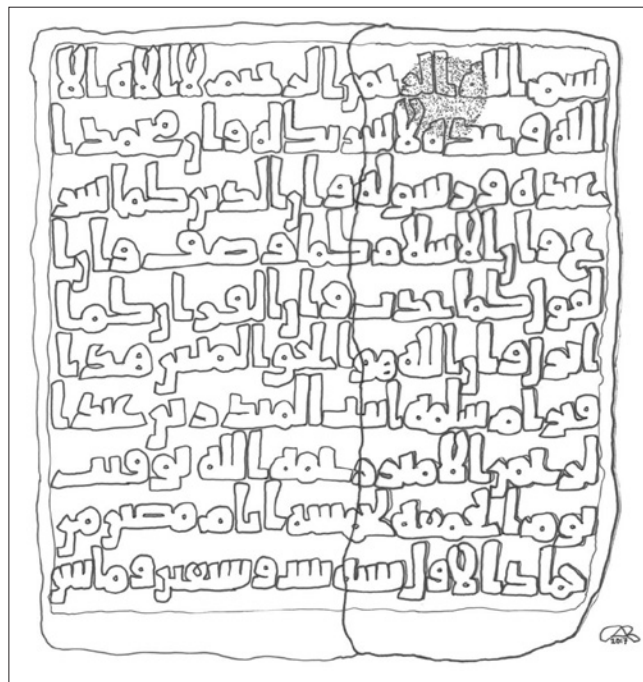 بسم الله الرحمن الرحيم لا اله الا
الله وحده لا شريك له وان محمدا
عبده ورسوله وان الدين كما شر
ع وان الاسلام كما وصف وان ا
لقول كما حدث وان القران كما
انزل وان الله هو الحق المبين هذا
قبر ام سلمة ابنت المنذر بن عبد ا
لرحمن الاموي رحمه الله توفيت
يوم الجمعة لخمسة ايام مضين من
جمادا الاول سنة ست و وماتين
2017